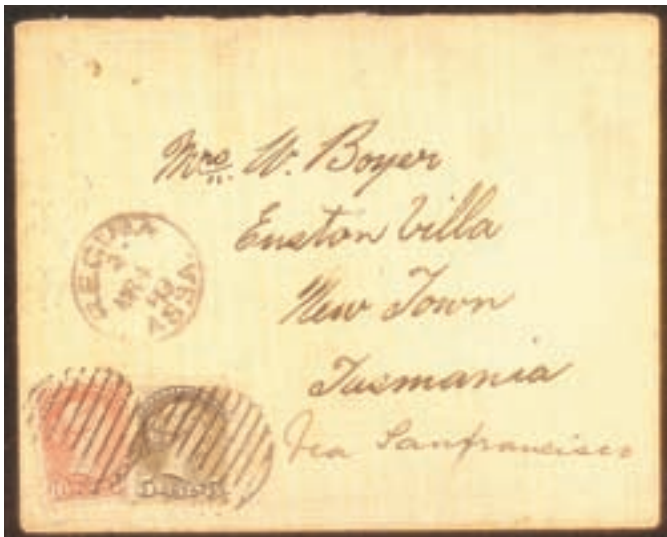 Mrs. W. Boyer
Euston Villa
New Town
Tasmania
Via Sanfrancisco
REGINA